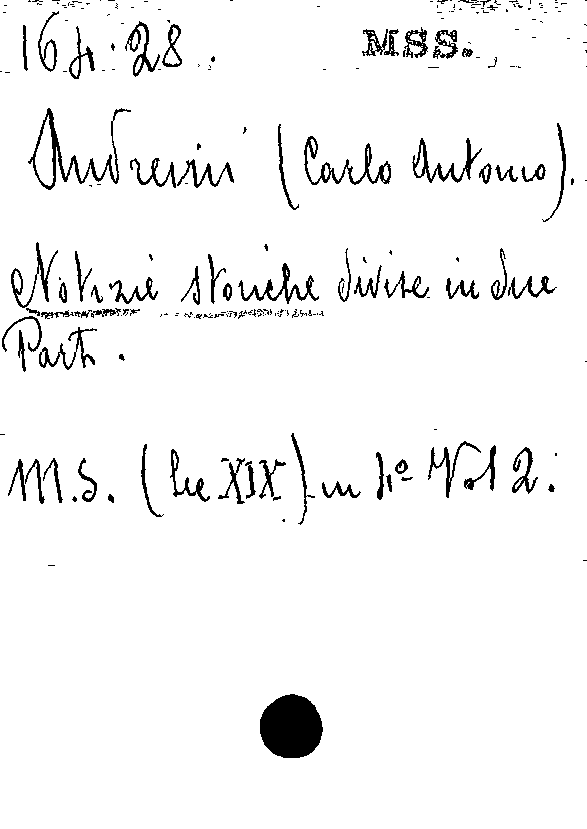 164.28. MSS.
Andreini (Carlo Antonio).
Notizie storiche divise in due
Parti.
M.S. (Sec XIX) in 4º Vol 2.